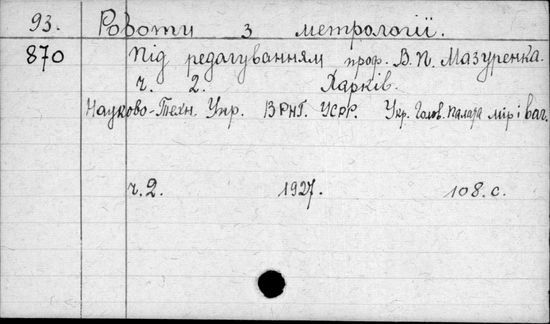 93. Роботи з метрології.
870 Під редагуванням проф. В. П. Мазуренка.
ч. 2. Харків.
Науково-Техн. Упр. ВРНГ. УСРР. Укр. Голов. палата мір і ваг.
ч. 2. 1927. 108. с.